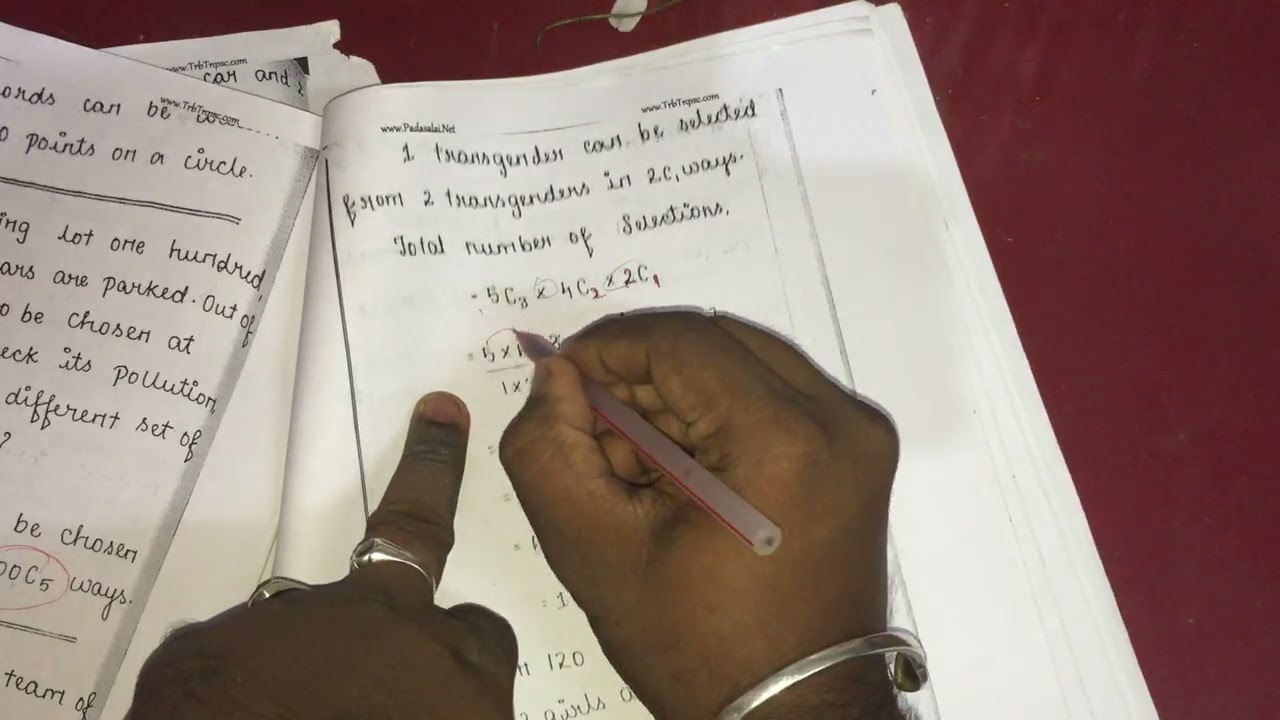 www.TrbTnpsc.com
car and
www.TrbTnpsc.com
ords can be
0 points on a circle.
ing lot one hundred,
ars are parked. Out of
o be chosen at
eck its pollution,
different set of
?
be chosen
00C5 ways.
team of
www.Padasalai.Net
www.TrbTnpsc.com
1 transgender can be selected
from 2 transgenders in 2C1 ways.
Total number of Selections.
= 5C3 × 4C2 × 2C1
= 5 ×
1 ×
=
=
=
= 1
120
girls